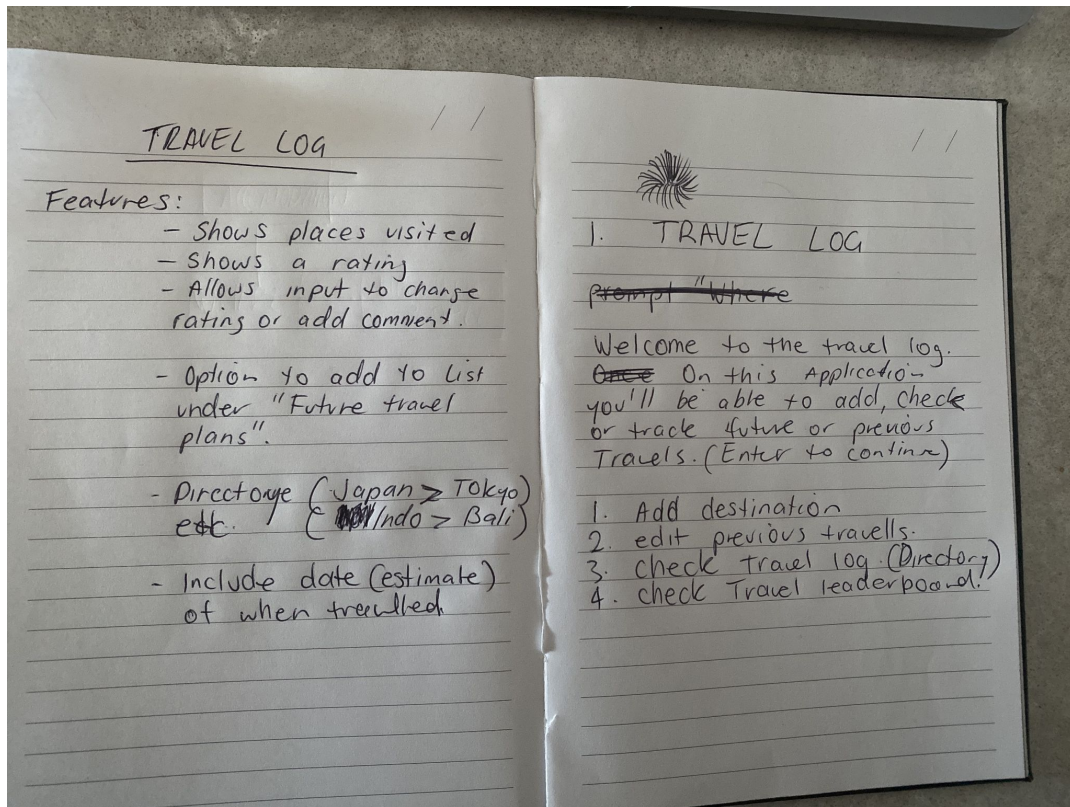 TRAVEL LOG
Features:
- Shows places visited
- Shows a rating
- Allows input to change
rating or add comment.
- Option to add to List
under "Future travel
plans".
- Directorye (Japan > Tokyo)
etc. (Indo > Bali)
- Include date (estimate)
of when travelled
1. TRAVEL LOG
prompt "Where
Welcome to the travel log.
Once On this Application
you'll be able to add, check
or track future or previous
Travels. (Enter to continue)
1. Add destination
2. edit previous travells.
3. check travel log. (Directory)
4. check Travel leaderboard.